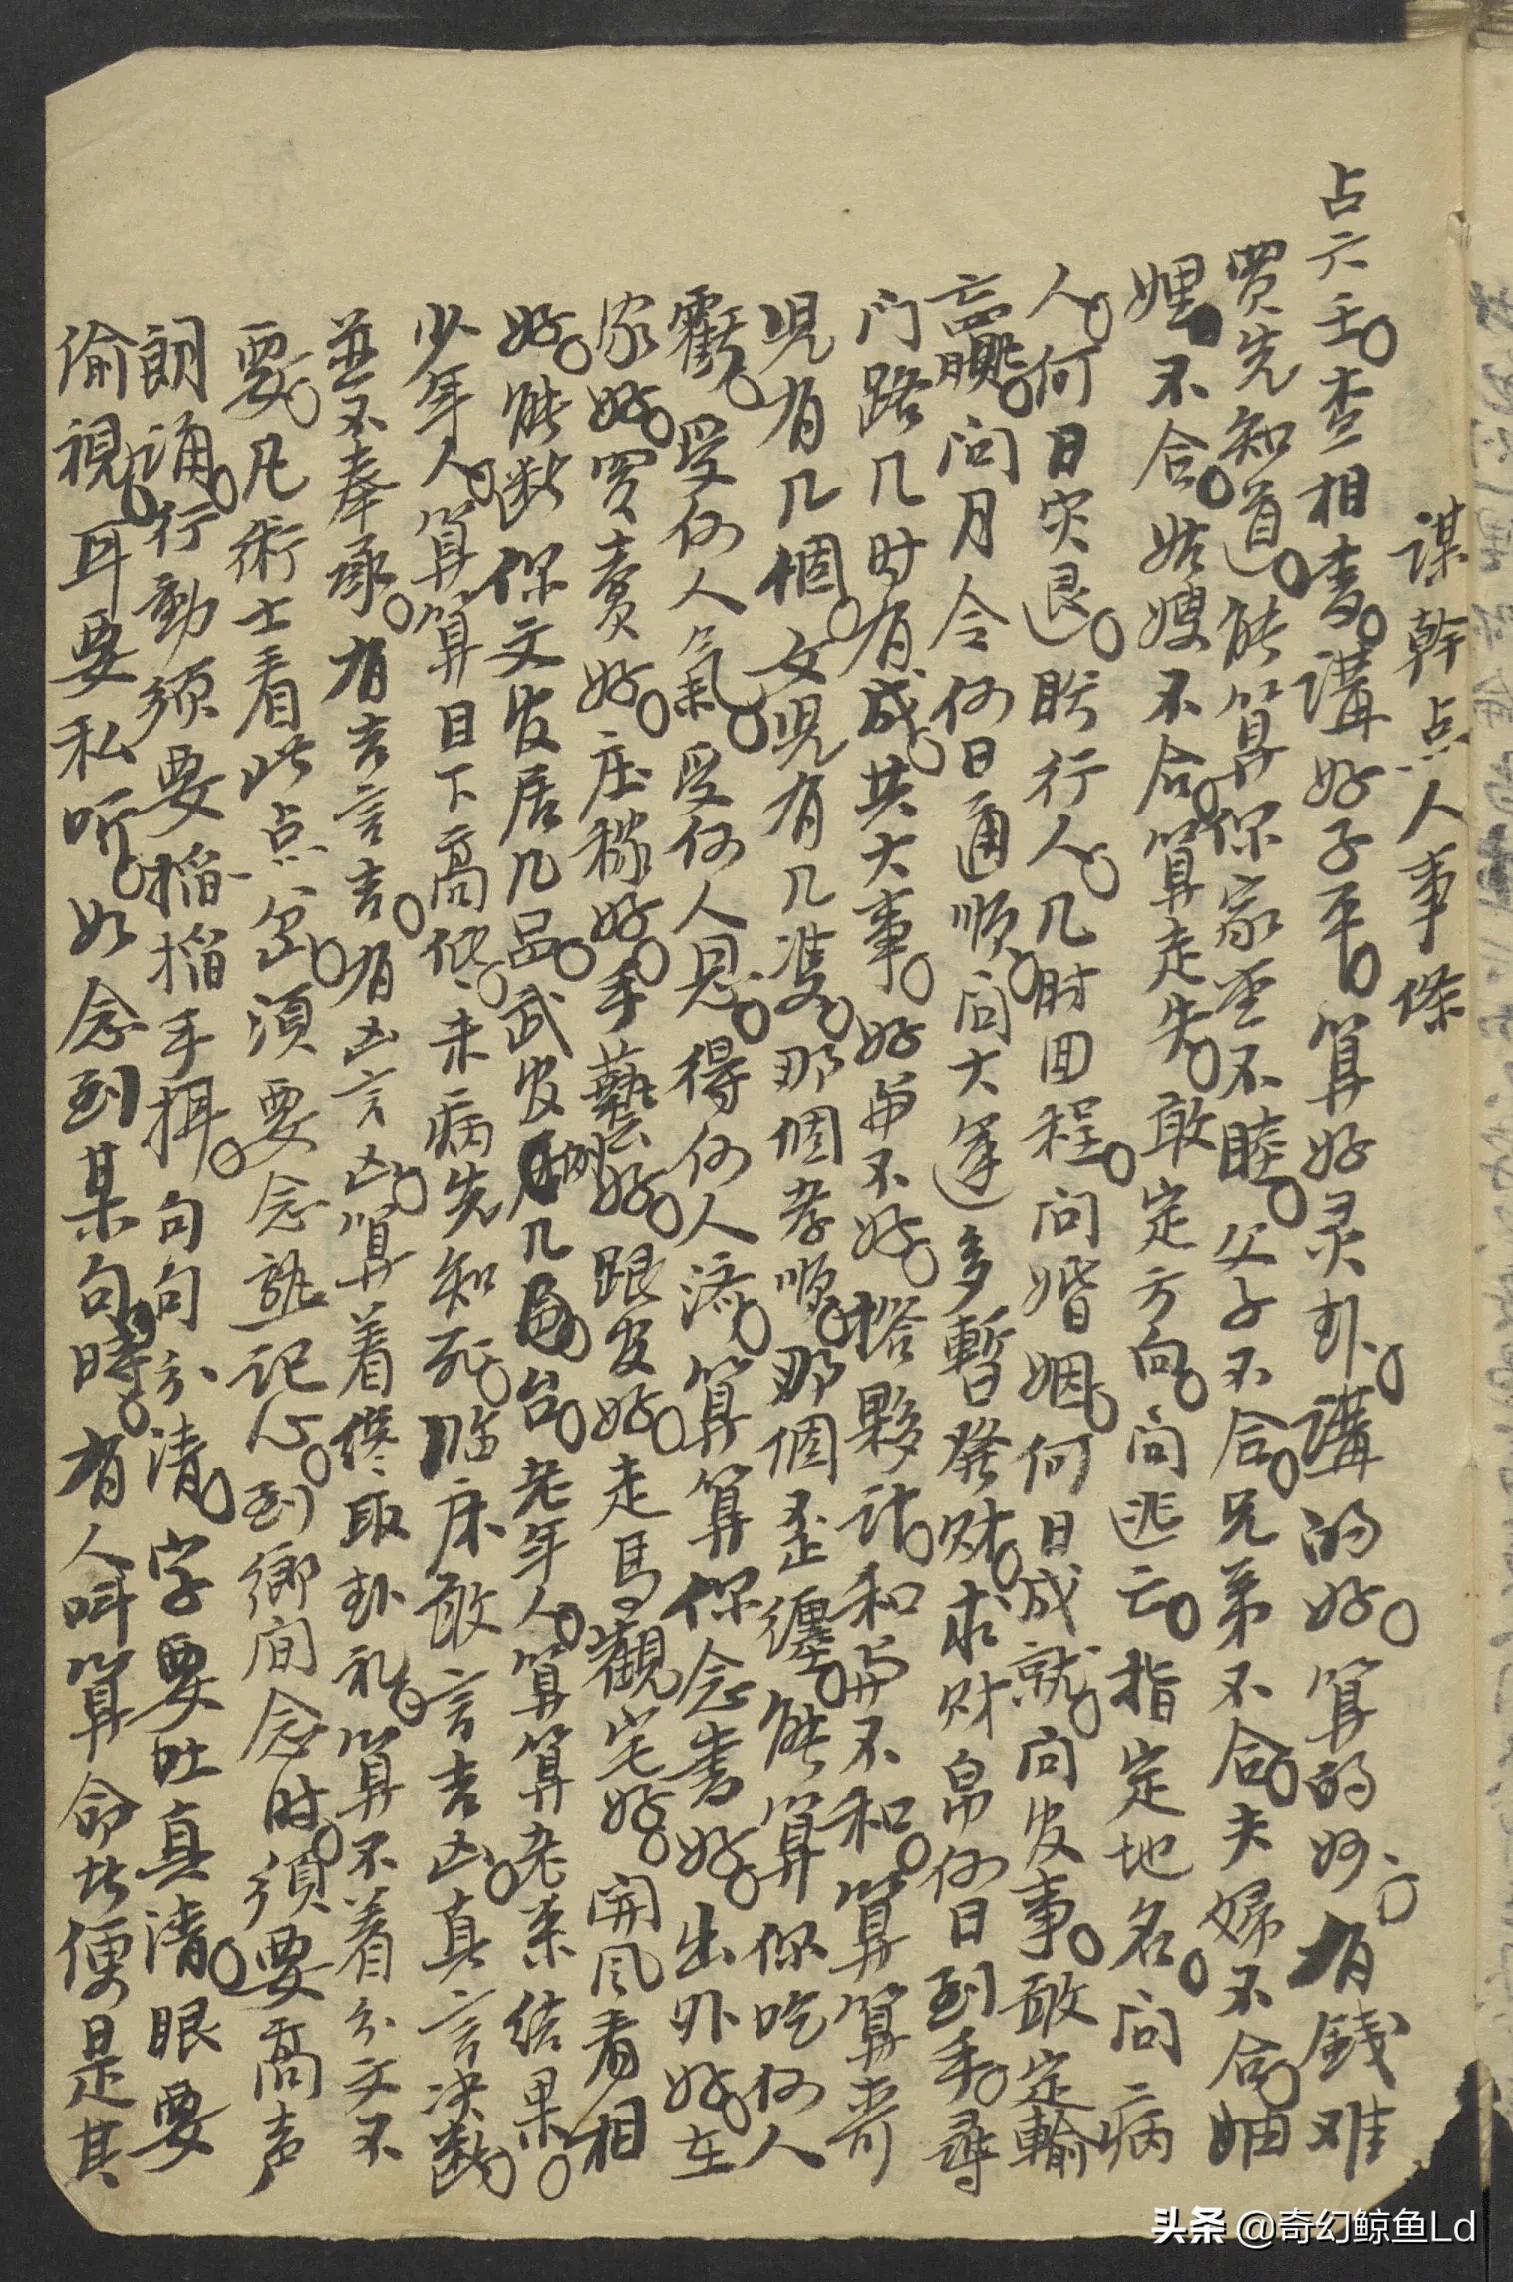 謀幹点人事條
占六壬。查相書。講好子平。算好灵卦。講的好。算的妙。有錢难
買先知道。能算你家堂不睦。父子不合。兄弟不合。夫婦不合。妯
娌不合。姑嫂不合。算走失。敢定方向。问逃亡。指定地名。问病
人。何日灾退。行人。几时回程。问婚姻。何日成就。向官事。敢定輸
贏。问月令何日通順。问大運多暫發财。求财帛何日到手。尋
门路几时有成。共大事。好与不好。搭夥计。和与不和。算算哥
児有几個。女児有几隻。那個孝順。那個歪纏。能算你吃何人
虧。受何人氣。受何人恩。得何人济。算算你念書好。出外好。在
家好。买賣好。庄稼好。手藝好。跟官好。走馬觀宅好。開风看相
好。能断你文官居几品。武官几台。老年人。算算老来结果。
少年人。算算目下高低。未病先知死。临床敢言吉凶。真言决断。
並不奉承。有吉言吉。有凶言凶。算着纔取卦礼。算不着分文不
要。凡術士看此点。須要念熟记心。到鄉间念时。須要高声
朗诵。行動须要摇摇手。句句分清。字要吐真清。眼要
偷視。耳要私听。如念到某句時。有人叫算命者便是其
头条 @奇幻鲸鱼Ld